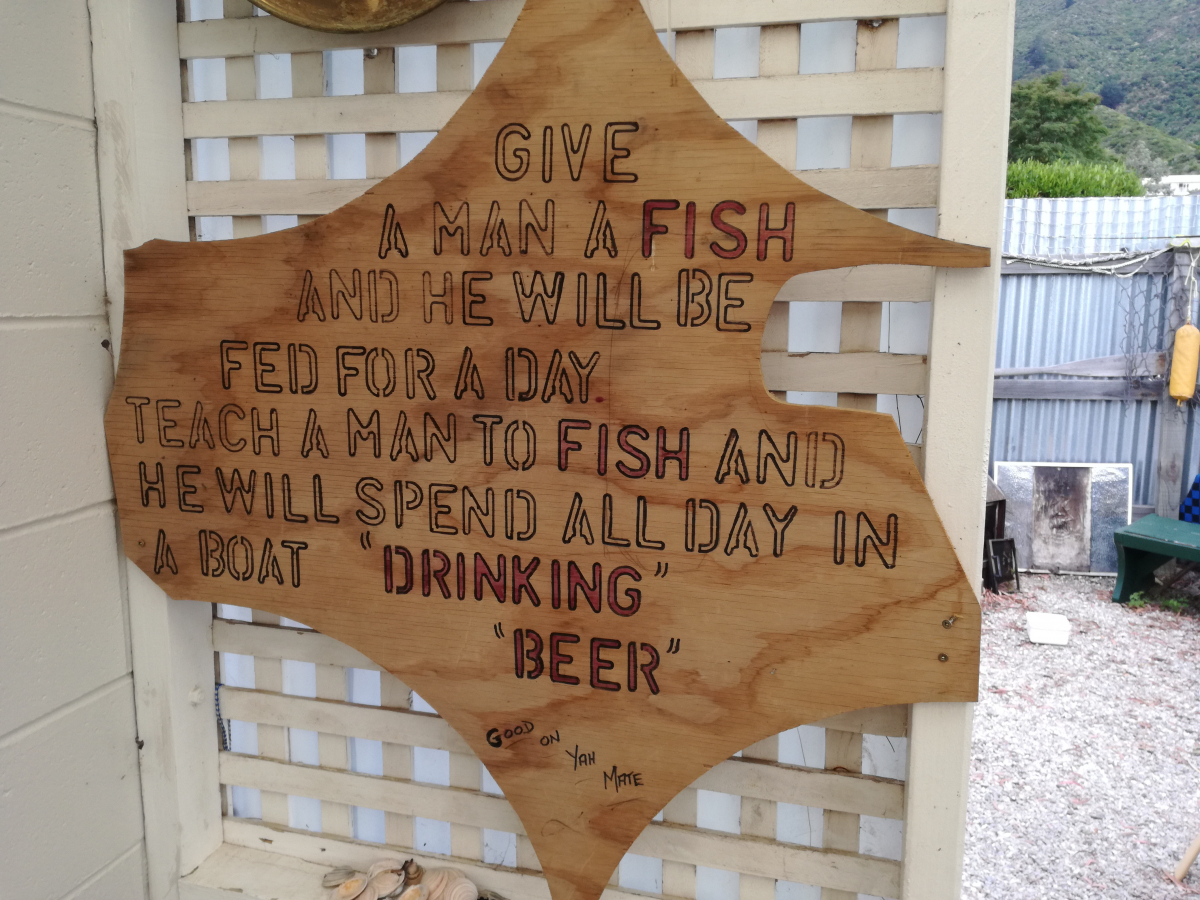 GIVE
A MAN A FISH
AND HE WILL BE
FED FOR A DAY
TEACH A MAN TO FISH AND
HE WILL SPEND ALL DAY IN
A BOAT "DRINKING"
"BEER"
GOOD ON YAH MATE